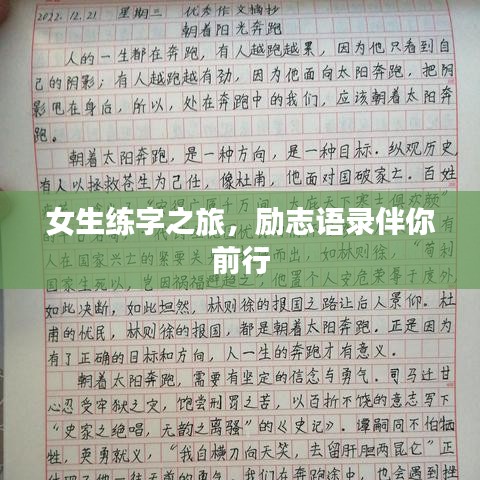 2022.12.21 星期三 优秀作文摘抄
朝着阳光奔跑
人的一生都在奔跑，有人越跑越累，因为他只看到自
己的阴影；有人越跑越有劲，因为他面向太阳奔跑，把阴
影甩在身后，所以，处在奔跑中的我们，应该朝着太阳奔
跑。
朝着太阳奔跑，是一种方向，是一种目标。纵观历史，
有人以拯救苍生为己任，像杜甫，他面对国破家亡。百姓
女生练字之旅，励志语录伴你
前行
国家生死以，岂因祸福避趋之，他置个人安危荣辱于度外，
如此决断，如此坦然，林则徐的报国之路让后人景仰。杜
甫的忧民，林则徐的报国，都是朝着太阳奔跑。正是因为
有了正确的目标和方向，人一生的奔跑才有意义。
朝着太阳奔跑，需要有坚定的信念与勇气。司马迁甘
心忍受牢狱之灾，饱尝刑罚之苦，以百折不饶的意志写下
“史家之绝唱，无韵之离骚”的《史记》。谭嗣同不怕牺
牲，英勇就义，“我自横刀向天笑，去留肝胆两昆仑”正